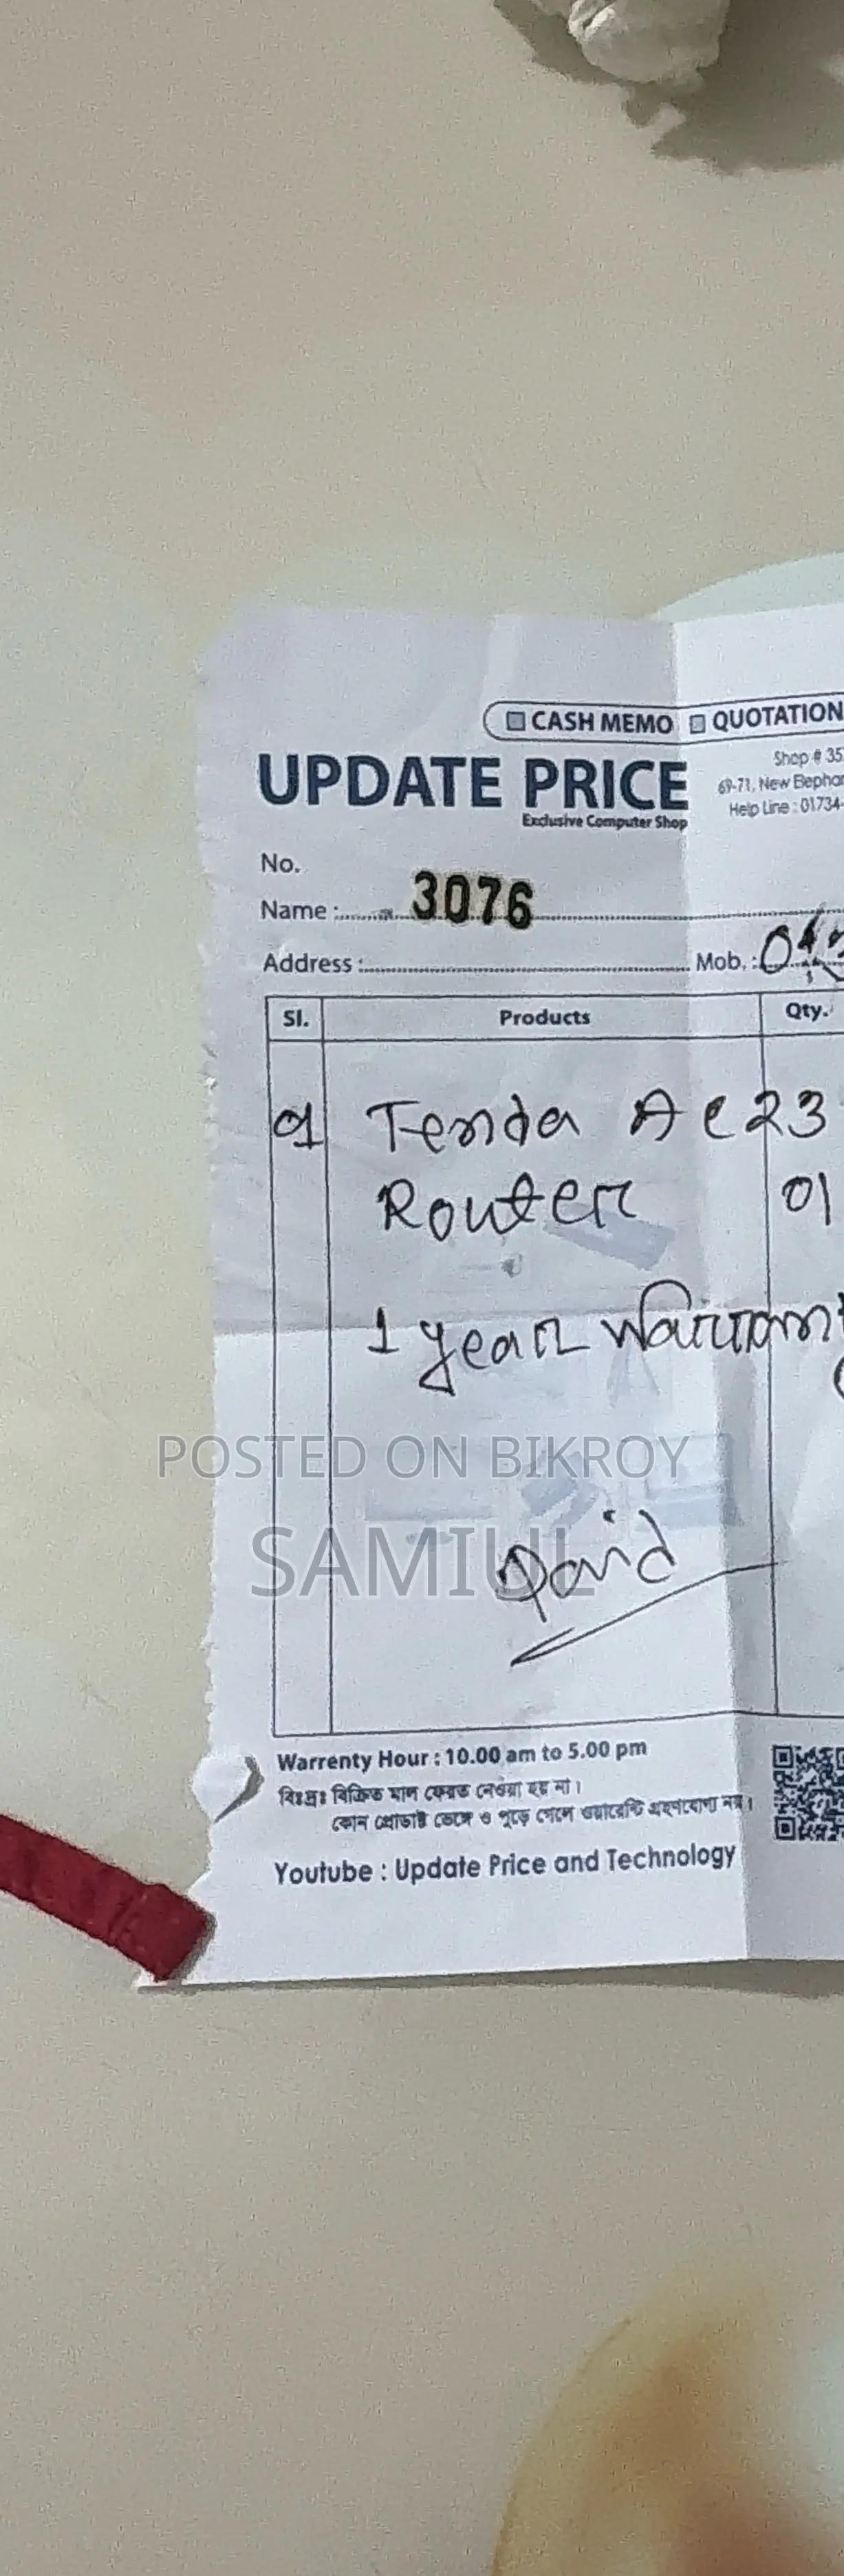 CASH MEMO QUOTATION
UPDATE PRICE
Exclusive Computer Shop
Shop # 35
69-71, New Elephan
Help Line : 01734-
No.
3076
Name :
Address : Mob. :
Sl. Products Qty.
Tenda AC23
Router 01
1 year Warrant
POSTED ON BIKROY
SAMIUL
Paid
Warrenty Hour : 10.00 am to 5.00 pm
বিঃদ্রঃ বিক্রিত মাল ফেরত নেওয়া হয় না।
কোন প্রোডাক্ট ভেঙ্গে ও পুড়ে গেলে ওয়ারেন্টি গ্রহণযোগ্য নয়।
Youtube : Update Price and Technology